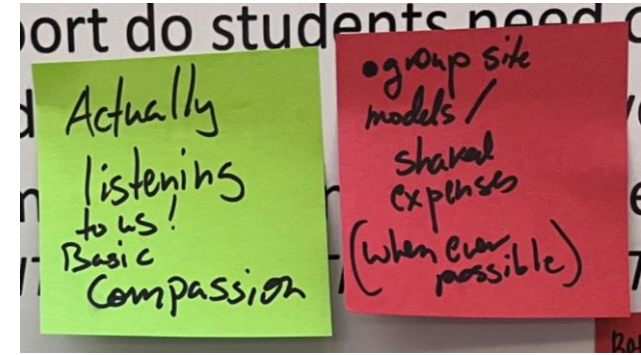 port do students need
Actually
listening
to us!
Basic
Compassion
• group site
models /
shared
expenses
(when ever
possible)